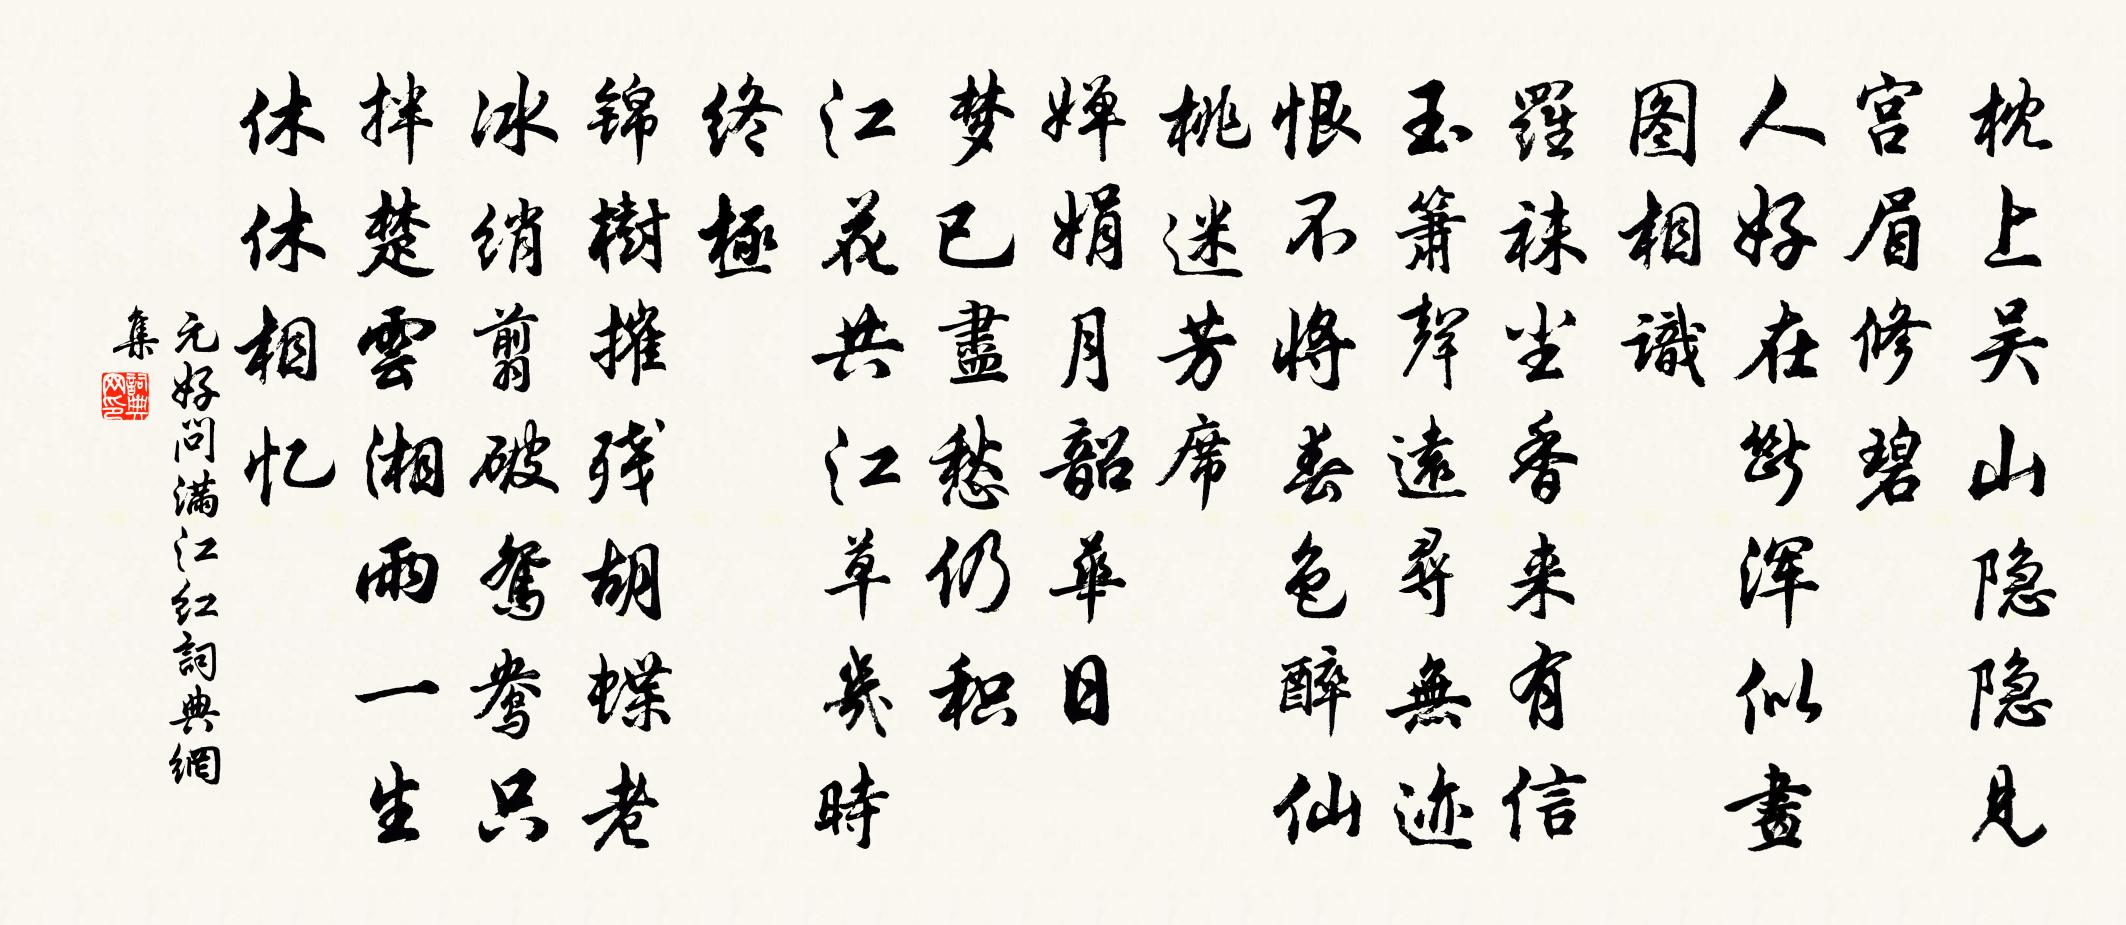 枕上吴山隐隐见
宫眉修碧
人好在斷浑似畫
图相識
羅袜尘香来有信
玉簫聲遠尋無迹
恨不將春色醉仙
桃迷芳席
婵娟月韶華日
梦已盡愁仍积
江花共江草幾時
终極
锦樹摧残胡蝶老
冰绡剪破鴛鴦只
拌楚雲湘雨一生
休休相忆
元好問满江红詞典網
集
詞典网印